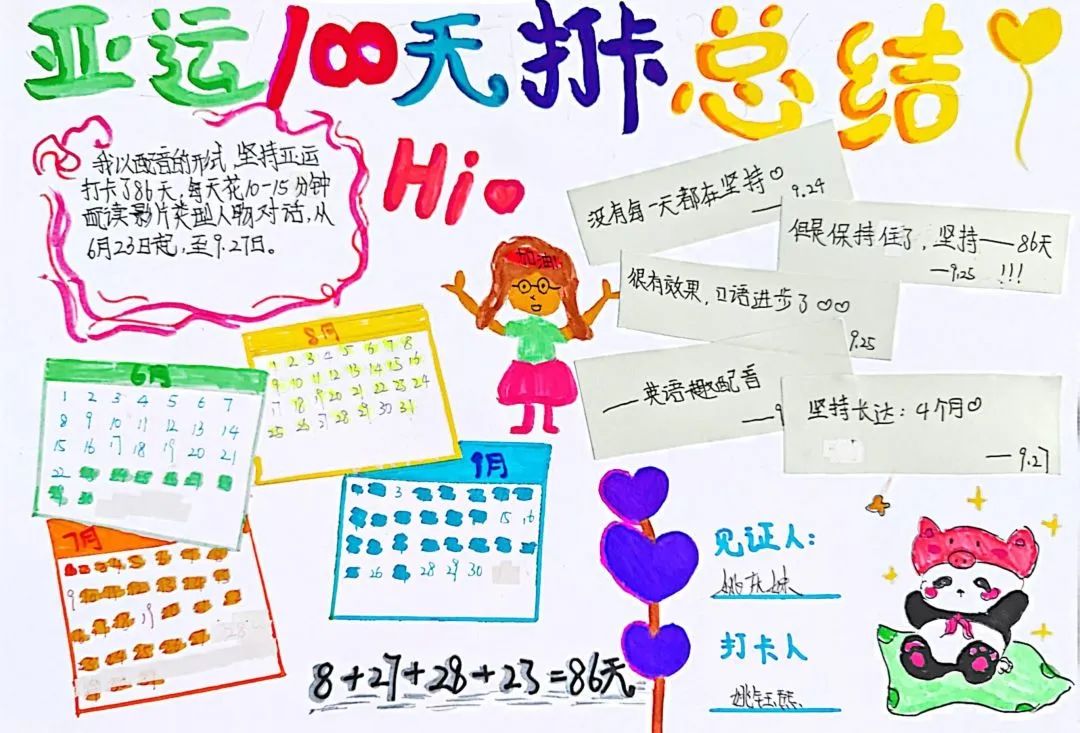 亚运100天打卡总结
我以配音的形式,坚持亚运
打卡了86天,每天花10-15分钟
配读影片类型人物对话,从
6月23日起,至9.27日。
Hi
加油!
没有每一天都在坚持
—9.24
但是保持住了,坚持——86天
—9.25 !!!
很有效果,口语进步了
9.25
——英语趣配音
坚持长达:4个月
—9.27
6月
1 2 3 4 5 6 7
8 9 10 11 12 13 14
15 16 17 18 19 20 21
22
8月
1 2 3 4 5 6 7 8
9 10 11 12 13 14 15 16
17 18 19 20 21 22 23 24
25 26 27 28 29 30 31
7月
9
19
28
9月
3
15 16
26 28 29 30
8+27+28+23=86天
见证人:
打卡人